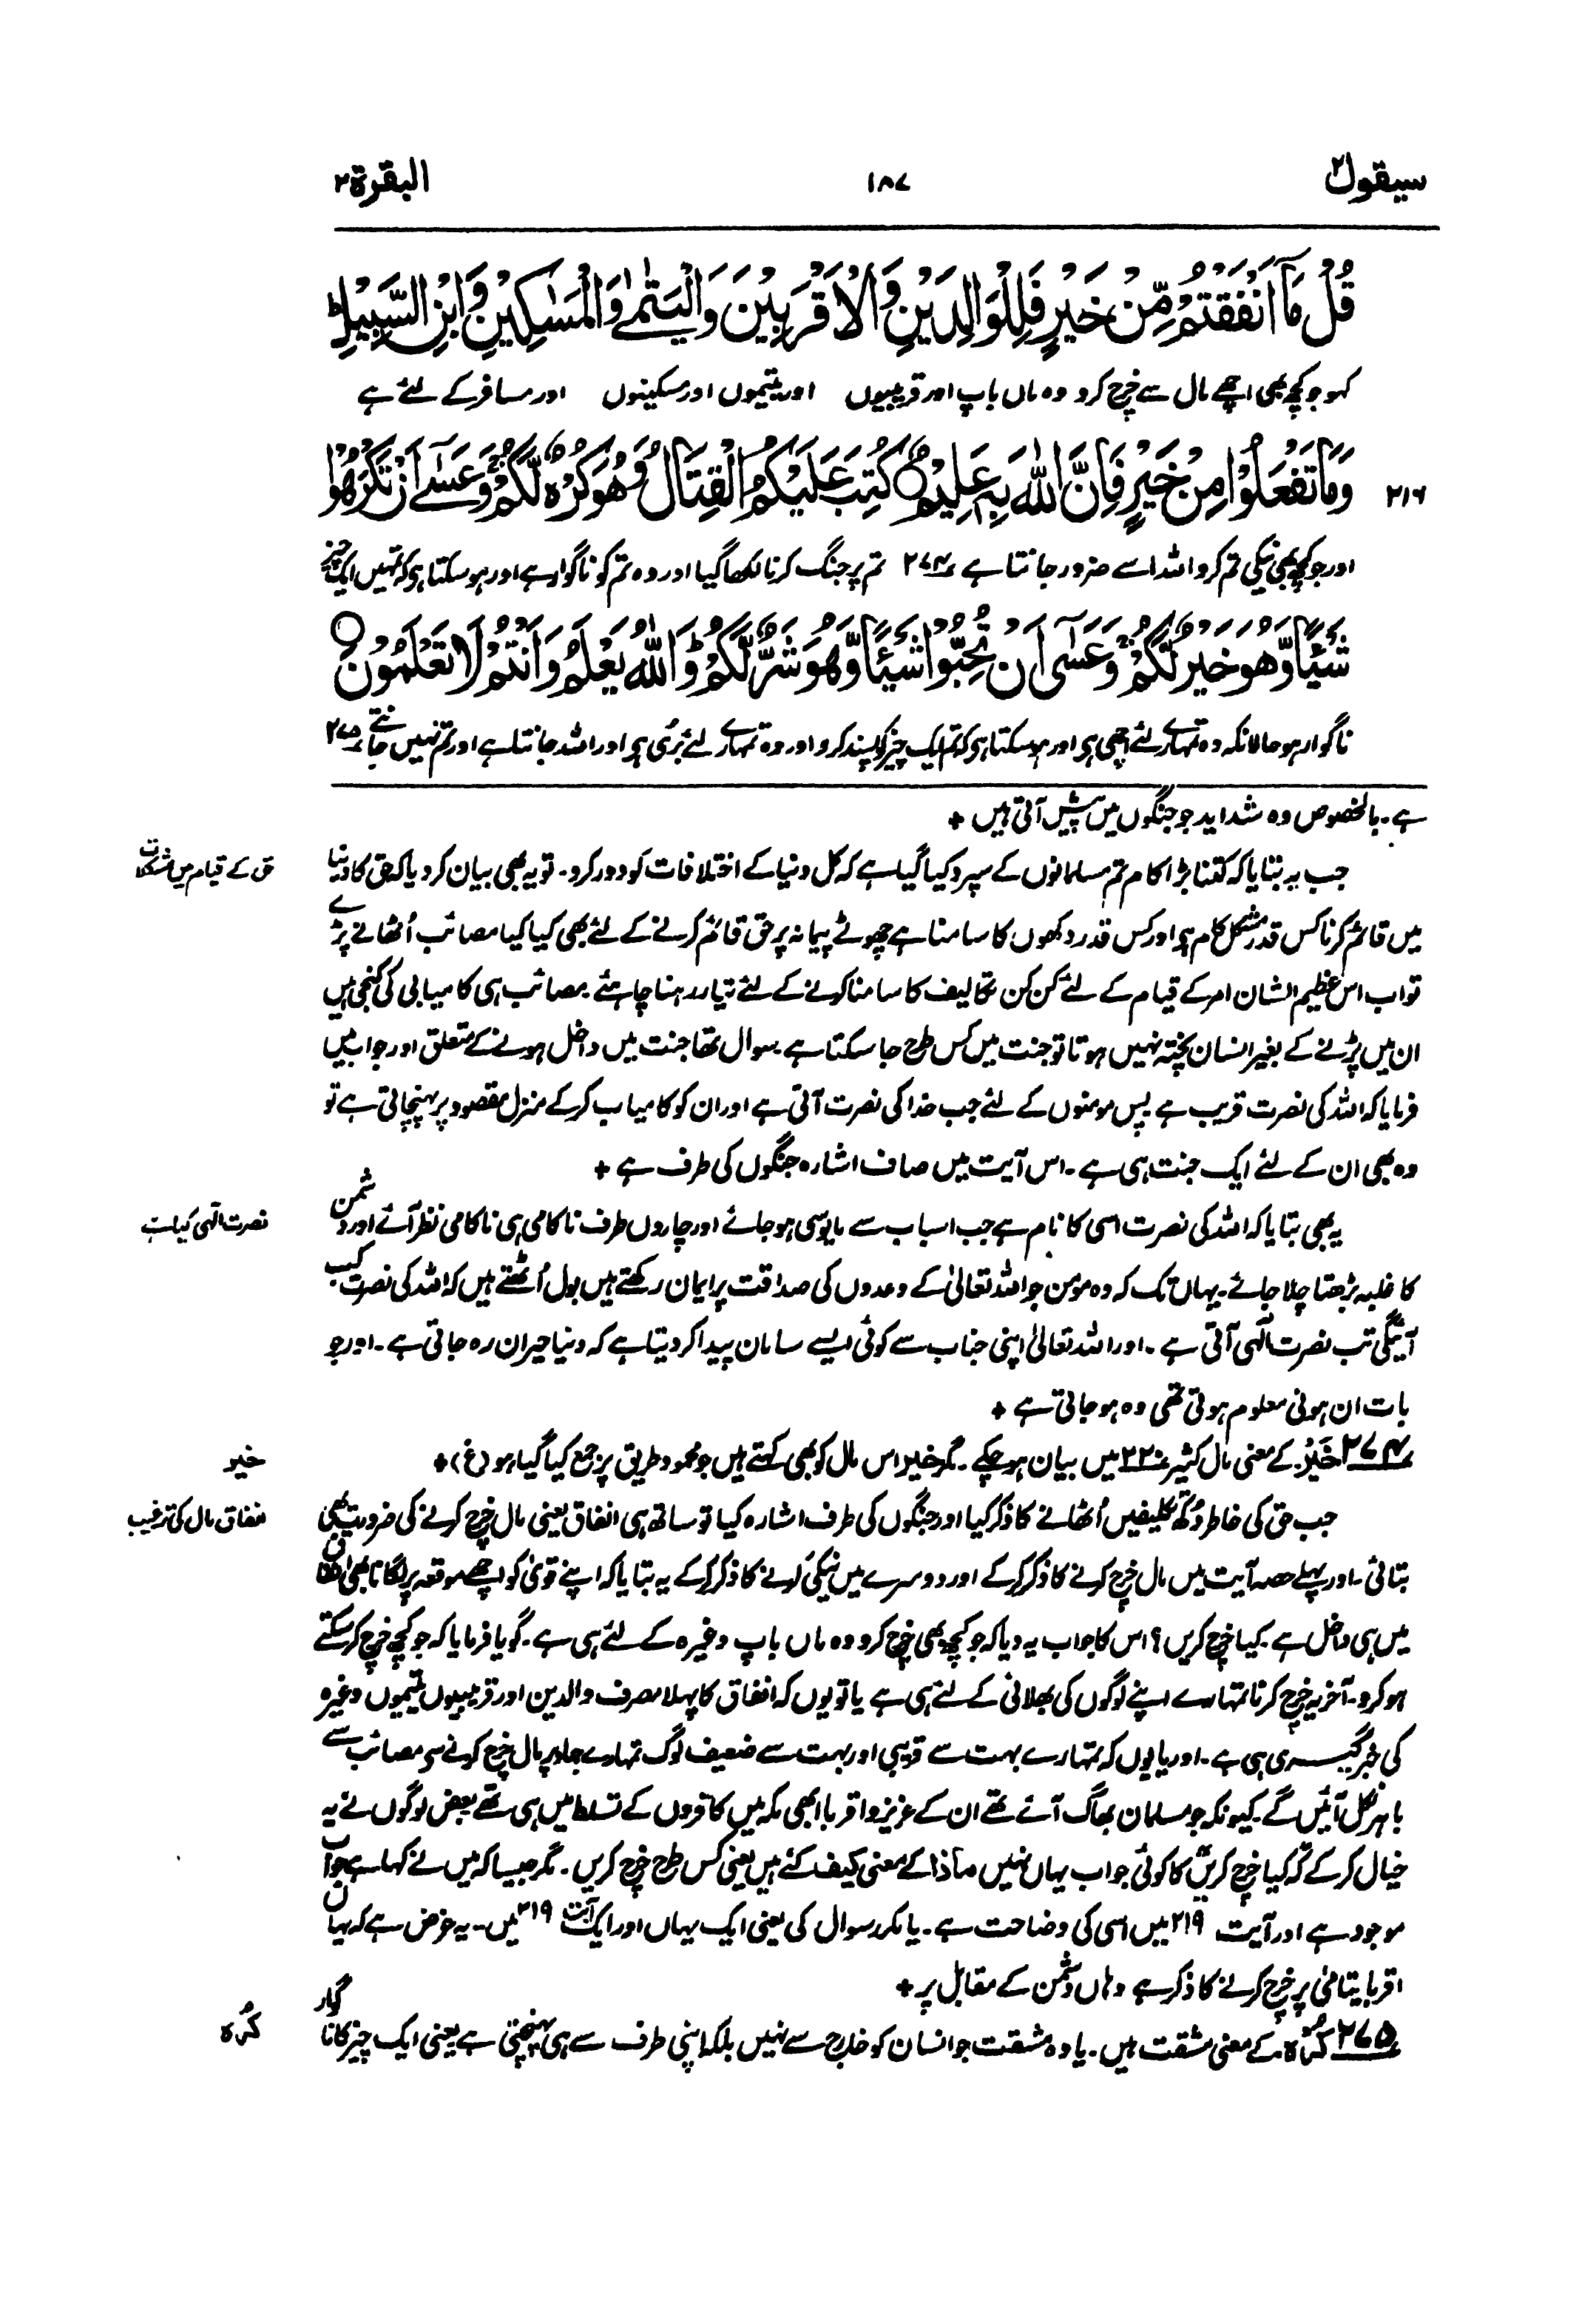 سیقول ٢
١٨٧
البقرة ٢
قُلْ مَآ اَنْفَقْتُمْ مِّنْ خَيْرٍ فَلِلْوَالِدَيْنِ وَالْاَقْرَبِيْنَ وَالْيَتٰمٰى وَالْمَسٰكِيْنِ وَابْنِ السَّبِيْلِ ؕ
کہو جو کچھ بھی اچھے مال سے خرچ کرو وہ ماں باپ اور قریبیوں اور یتیموں اور مسکینوں اور مسافر کے لئے ہے
٢١٦ وَمَا تَفْعَلُوْا مِنْ خَيْرٍ فَاِنَّ اللّٰهَ بِهٖ عَلِيْمٌ ○ كُتِبَ عَلَيْكُمُ الْقِتَالُ وَهُوَ كُرْهٌ لَّكُمْ ۚ وَعَسٰٓى اَنْ تَكْرَهُوْا
اور جو کچھ بھی نیکی تم کرو اللہ اسے ضرور جانتا ہے ٢٧٤ تم پر جنگ کرنا لکھا گیا اور وہ تم کو ناگوار ہے اور ہو سکتا ہی کہ تمہیں ایک چیز
شَيْـًٔا وَّهُوَ خَيْرٌ لَّكُمْ ۚ وَعَسٰٓى اَنْ تُحِبُّوْا شَيْـًٔا وَّهُوَ شَرٌّ لَّكُمْ ؕ وَاللّٰهُ يَعْلَمُ وَاَنْتُمْ لَا تَعْلَمُوْنَ ○
ناگوار ہو حالانکہ وہ تمہارے لئے اچھی ہو اور ہو سکتا ہی کہ تم ایک چیز کو پسند کرو اور وہ تمہارے لئے بُری ہو اور اللہ جانتا ہے اور تم نہیں جانتے ٢٧٥
ہے۔ بالخصوص وہ شداید جو جنگوں میں پیش آتی ہیں +
حق کے قیام میں مشکلات
جب یہ بتایا کہ کتنا بڑا کام تم مسلمانوں کے سپرد کیا گیا ہے کہ کل دنیا کے اختلافات کو دور کرو۔ تو یہ بھی بیان کر دیا کہ حق کا دنیا
میں قائم کرنا کس قدر مشکل کام ہو اور کس قدر دکھوں کا سامنا ہے چھوٹے پیمانہ پر حق قائم کرنے کے لئے بھی کیا کیا مصائب اُٹھانے پڑے
تو اب اس عظیم الشان امر کے قیام کے لئے کن کن تکالیف کا سامنا کرنے کے لئے تیار رہنا چاہئے۔ مصائب ہی کامیابی کی کنجی ہیں
ان میں پڑنے کے بغیر انسان پختہ نہیں ہوتا تو جنت میں کس طرح جا سکتا ہے۔ سوال تھا جنت میں داخل ہونے کے متعلق اور جواب میں
فرمایا کہ اللہ کی نصرت قریب ہے۔ پس مومنوں کے لئے جب خدا کی نصرت آتی ہے اور ان کو کامیاب کر کے منزل مقصود پر پہنچاتی ہے تو
وہ بھی ان کے لئے ایک جنت ہی ہے۔ اس آیت میں صاف اشارہ جنگوں کی طرف ہے +
نصرت الٰہی کیا ہے
یہ بھی بتایا کہ اللہ کی نصرت اسی کا نام ہے جب اسباب سے مایوسی ہو جائے اور چاروں طرف ناکامی ہی ناکامی نظر آئے اور دشمن
کا غلبہ بڑھتا چلا جائے۔ یہاں تک کہ وہ مومن جو اللہ تعالیٰ کے وعدوں کی صداقت پر ایمان رکھتے ہیں بول اُٹھتے ہیں کہ اللہ کی نصرت کب
آئیگی تب نصرت الٰہی آتی ہے۔ اور اللہ تعالیٰ اپنی جناب سے کوئی ایسے سامان پیدا کر دیتا ہے کہ دنیا حیران رہ جاتی ہے۔ اور جو
بات ان ہونی معلوم ہوتی تھی وہ ہو جاتی ہے +
خیر
٢٧٤ خَیْر۔ کے معنی مال کثیر ٢٢٠ میں بیان ہو چکے۔ مگر خیر اس مال کو بھی کہتے ہیں جو محمود طریق پر جمع کیا گیا ہو (غ) +
انفاق مال کی ترغیب
جب حق کی خاطر دُکھ تکلیفیں اُٹھانے کا ذکر کیا اور جنگوں کی طرف اشارہ کیا تو ساتھ ہی انفاق یعنی مال خرچ کرنے کی ضرورت بھی
بتائی۔ اور پہلے حصہ آیت میں مال خرچ کرنے کا ذکر کر کے اور دوسرے میں نیکی کرنے کا ذکر کر کے یہ بتایا کہ اپنے قویٰ کو اچھے موقعہ پر لگانا بھی انفاق
میں ہی داخل ہے۔ کیا خرچ کریں؟ اس کا جواب یہ دیا کہ جو کچھ بھی خرچ کرو وہ ماں باپ وغیرہ کے لئے ہی ہے۔ گویا فرمایا کہ جو کچھ خرچ کر سکتے
ہو کرو۔ آخر یہ خرچ کرنا تمہارے اپنے لوگوں کی بھلائی کے لئے ہی ہے یا تو یوں کہ انفاق کا پہلا مصرف والدین اور قریبیوں یتیموں وغیرہ
کی خبر گیری ہی ہے۔ اور یا یوں کہ تمہارے بہت سے قریبی اور بہت سے ضعیف لوگ تمہارے جہاد پر مال خرچ کرنے سے مصائب سے
باہر نکل آئیں گے۔ کیونکہ جو مسلمان بھاگ آئے تھے ان کے عزیز و اقربا ابھی مکہ میں کافروں کے تسلط میں ہی تھے بعض لوگوں نے یہ
خیال کر کے کہ کیا خرچ کریں کا کوئی جواب یہاں نہیں ماذا کے معنی کیف کئے ہیں یعنی کس طرح خرچ کریں۔ مگر جیسا کہ میں نے کہا ہے جواب
موجود ہے اور آیت ٢١٩ میں اسی کی وضاحت ہے۔ یا مکرر سوال کی یعنی ایک یہاں اور ایک آیت ٢١٩ میں۔ یہ غرض ہے کہ یہاں
اقربا یتامٰی پر خرچ کرنے کا ذکر ہے وہاں دشمن کے مقابل پر +
کُرْہ
٢٧٥ کُرْہ کے معنی مشقت ہیں۔ یا وہ مشقت جو انسان کو خارج سے نہیں بلکہ اپنی طرف سے ہی پہنچتی ہے یعنی ایک چیز کا ناگوار